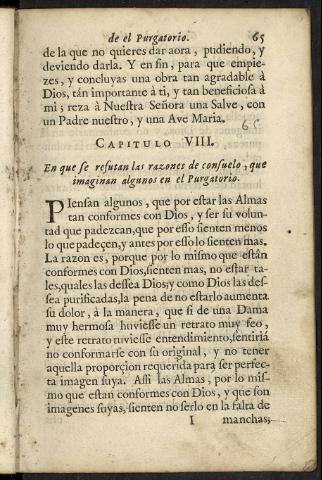 de el Purgatorio. 65
de la que no quieres dar aora, pudiendo, y
deviendo darla. Y en fin, para que empie-
zes, y concluyas una obra tan agradable à
Dios, tán importante à ti, y tan beneficiosa à
mi; reza à Nuestra Señora una Salve, con
un Padre nuestro, y una Ave Maria.
65
CAPITULO VIII.
En que se refutan las razones de consuelo, que
imaginan algunos en el Purgatorio.
PIensan algunos, que por estar las Almas
tan conformes con Dios, y ser su volun-
tad que padezcan, que por esso sienten menos
lo que padeçen, y antes por esso lo sienten mas.
La razon es, porque por lo mismo que están
conformes con Dios, sienten mas, no estar ta-
les, quales las dessea Dios; y como Dios las des-
sea purificadas, la pena de no estarlo aumenta
su dolor, à la manera, que si de una Dama
muy hermosa huviesse un retrato muy feo,
y este retrato tuviesse entendimiento, sentiria
no conformarse con su original, y no tener
aquella proporçion requerida para ser perfec-
ta imagen suya. Assi las Almas, por lo mis-
mo que estan conformes con Dios, y que son
imagenes suyas, sienten no serlo en la falta de
I manchas;